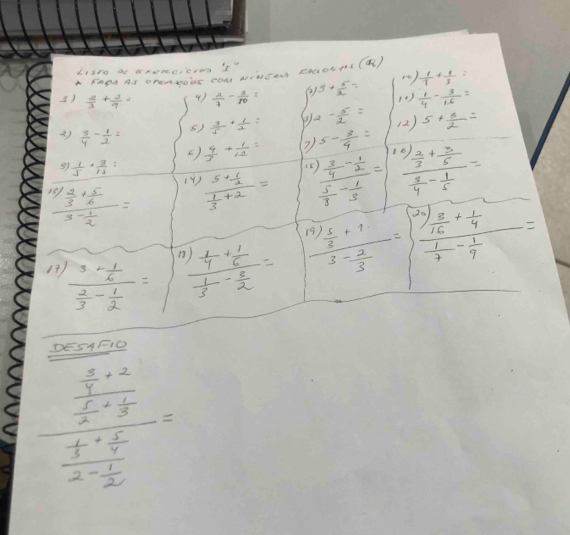 LISTA DE EXERCÍCIOS "1"
* FAÇA AS OPERAÇÕES COM NÚMEROS RACIONAIS (Q)
1) 2/3 + 2/9 =
2) 3/4 - 1/2 =
3) 1/5 + 3/10 =
4) 2/7 - 3/10 =
5) 3/5 + 1/2 =
6) 4/5 + 1/12 =
3 + 5/2 =
2 - 5/2 =
7) 5 - 3/4 =
1/7 + 1/3 =
11) 1/4 - 3/16 =
12) 5 + 3/2 =
(2/3 + 5/6) / (3 - 1/2) =
14) (5 + 1/2) / (1/3 + 2) =
15) (3/4 - 1/2) / (5/8 - 1/3) =
16) (2/3 + 3/5) / (3/4 - 1/5) =
17) (3 + 1/6) / (2/3 - 1/2) =
(1/4 + 1/6) / (1/3 - 3/2) =
19) (5/3 + 1) / (3 - 2/3) =
20) (3/16 + 1/4) / (1/7 - 1/9) =
DESAFIO
((3/4 + 2) / (5/2 + 1/3)) / ((1/3 + 5/4) / (2 - 1/2)) =